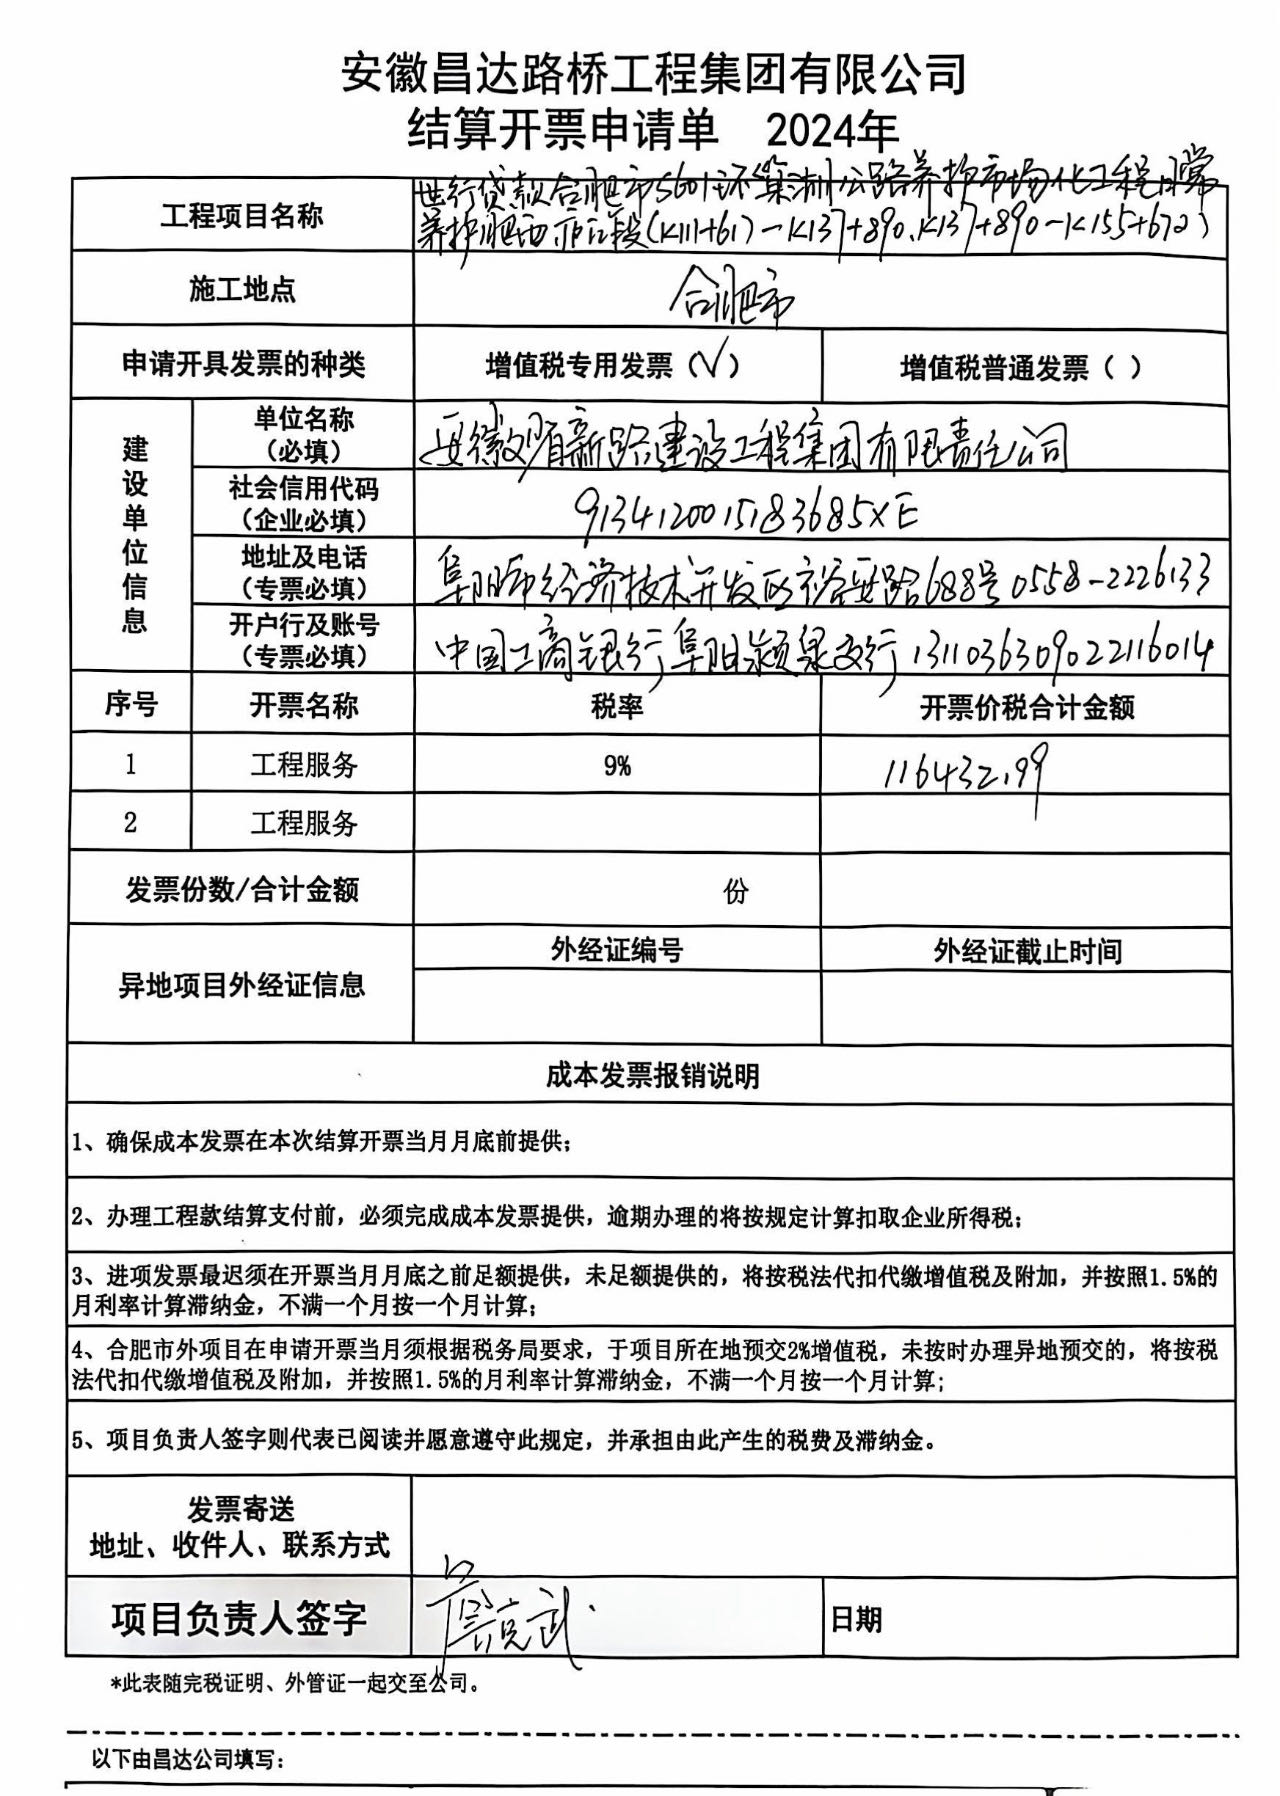 安徽昌达路桥工程集团有限公司
结算开票申请单 2024年
工程项目名称
世行贷款合肥市S601环巢湖公路养护市场化工程日常
养护肥西 段(K111+617-K137+890、K137+890-K155+672)
施工地点
合肥市
申请开具发票的种类
增值税专用发票(√)
增值税普通发票( )
建设单位信息
单位名称
(必填)
安徽省新路建设工程集团有限责任公司
社会信用代码
(企业必填)
91341200151836 85XE
地址及电话
(专票必填)
阜阳市经济技术开发区裕安路688号 0558-2226133
开户行及账号
(专票必填)
中国工商银行阜阳颍泉支行 1311036309022116014
序号 开票名称 税率 开票价税合计金额
1 工程服务 9% 116432.99
2 工程服务
发票份数/合计金额 份
异地项目外经证信息
外经证编号 外经证截止时间
成本发票报销说明
1、确保成本发票在本次结算开票当月月底前提供;
2、办理工程款结算支付前,必须完成成本发票提供,逾期办理的将按规定计算扣取企业所得税;
3、进项发票最迟须在开票当月月底之前足额提供,未足额提供的,将按税法代扣代缴增值税及附加,并按照1.5%的
月利率计算滞纳金,不满一个月按一个月计算;
4、合肥市外项目在申请开票当月须根据税务局要求,于项目所在地预交2%增值税,未按时办理异地预交的,将按税
法代扣代缴增值税及附加,并按照1.5%的月利率计算滞纳金,不满一个月按一个月计算;
5、项目负责人签字则代表已阅读并愿意遵守此规定,并承担由此产生的税费及滞纳金。
发票寄送
地址、收件人、联系方式
项目负责人签字
日期
*此表随完税证明、外管证一起交至公司。
以下由昌达公司填写: